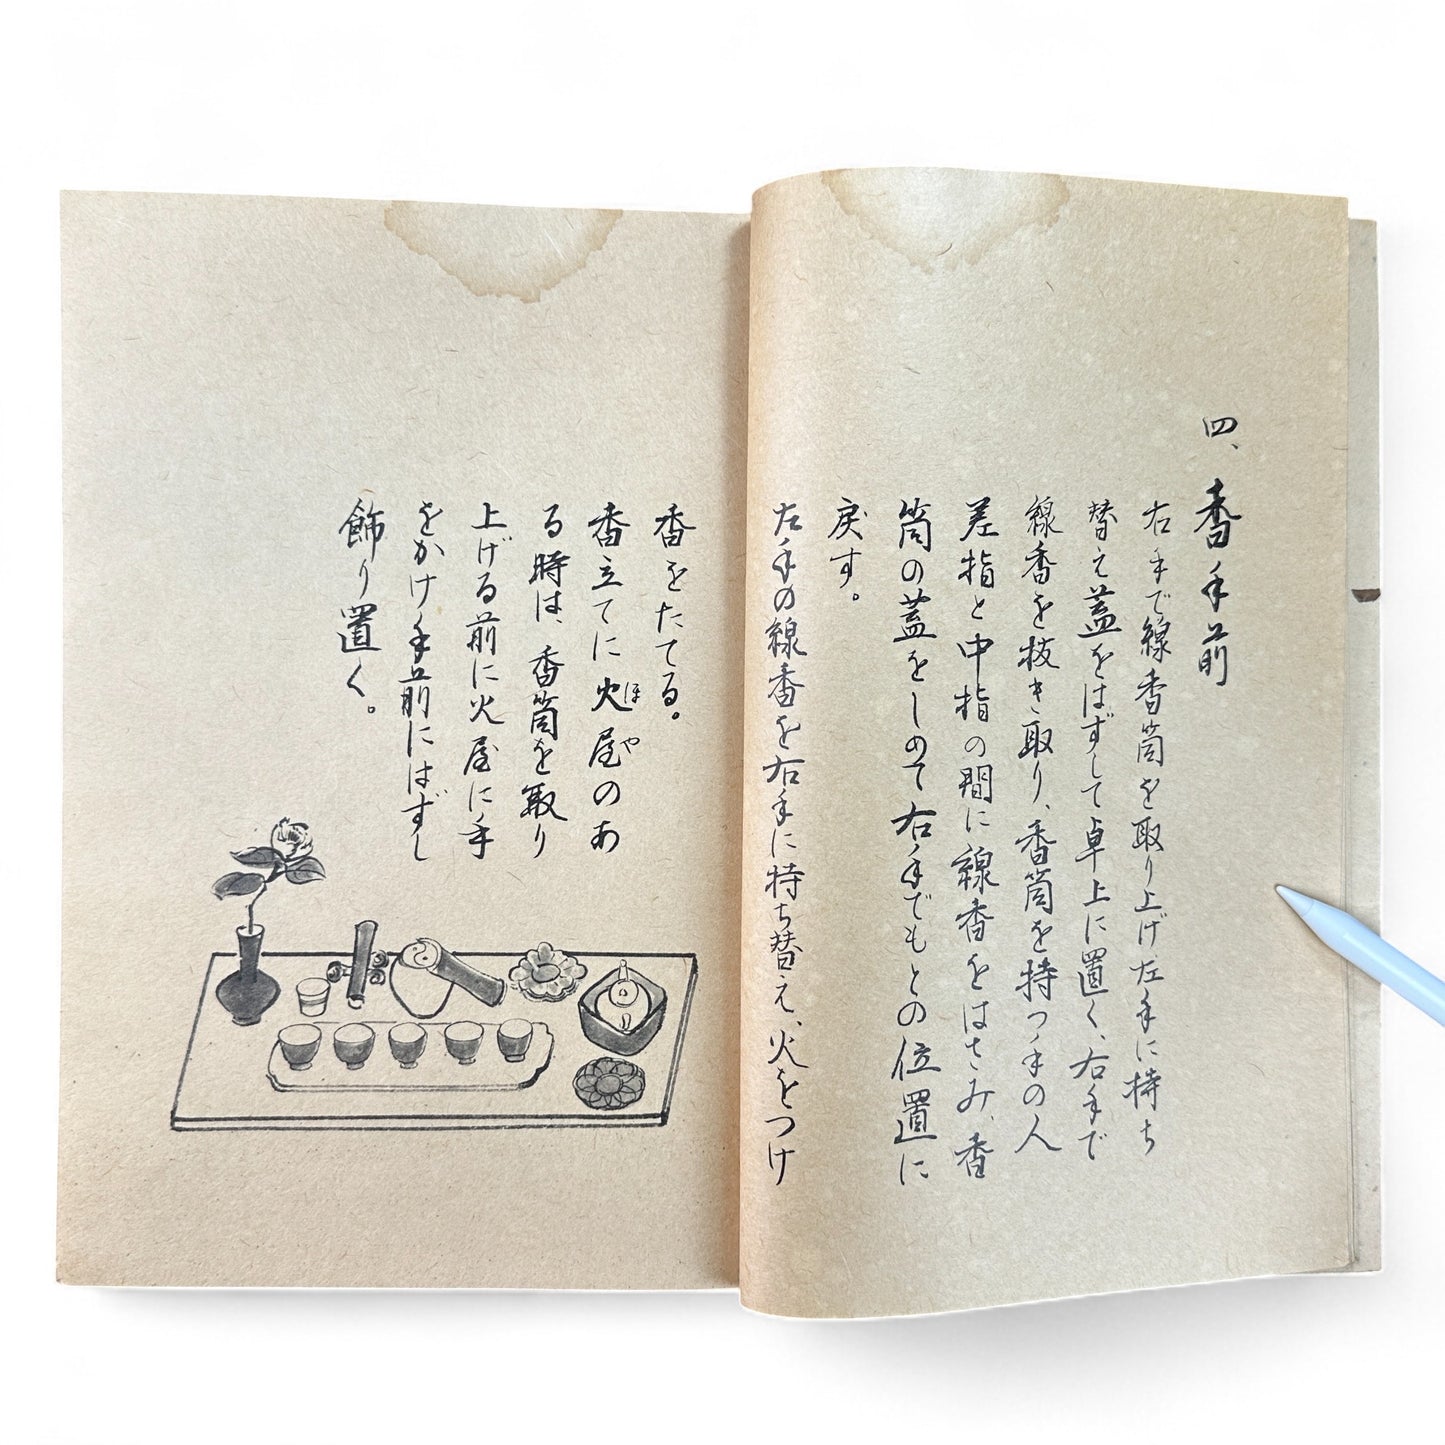 四、香手前
右手で線香筒を取り上げ左手に持ち
替え蓋をはずして卓上に置く、右手で
線香を抜き取り、香筒を持つ手の人
差指と中指の間に線香をはさみ、香
筒の蓋をしめて右手でもとの位置に
戻す。
左手の線香を右手に持ち替え、火をつけ
香をたてる。
香立てに火屋のあ
ほや
る時は、香筒を取り
上げる前に火屋に手
をかけ手前にはずし
飾り置く。